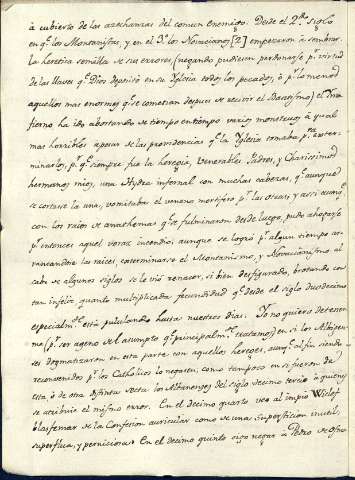 à cubierto de las asechanzas del comun Enemigo. Desde el 2.º siglo
en q.e los Montanistas, y en el 3.º los Novacianos [2] empezaron à sembrar
la heretica semilla de sus errores, (negando pudieran perdonarse p.r virtud
de las llaves q.e Dios depositó en su Yglesia todos los pecados, ò p.r lo menos
aquellos mas enormes q.e se cometian despues de recivir el Bautismo) el Yn-
fierno ha ido abortando de tiempo en tiempo varios monstruos à qual
mas horribles apesar de las providencias q.e la Yglesia tomaba p.a exter-
minarlos, p.r q.e siempre fue la heregia, Venerables Padres, y Charissimos
hermanos mios, una Hydra infernal con muchas cabezas, q.e aunque
se cortase la una, vomitaba el veneno mortifero p.r las otras; y assi aunq.e
con los raios de anathemas q.e se fulminaron desde luego, pudo ahogarse
p.r entonces aquel voraz incendio; aunque se logró p.r algun tiempo ar-
rancandole las raices, exterminarse el Montanismo, y Novacianismo al
cabo de algunos siglos se le vió renacer, si bien desfigurado, brotando con
tan infeliz quanto multiplicada fecundidad q.e desde el siglo duodecimo
especialm.te está pululando hasta nuestros dias. Yo no quiero detener-
me (p.r ser ageno de el asumpto q.e principalm.te tratamos) en si los Albigen-
ses dogmatizaron en esta parte con aquellos hereges, aunq.e al fin siendo
reconvenidos p.r los Catholicos lo negasen; como tampoco en si fueron de
esta, ò de otra distinta secta los Albanenses del siglo decimo tercio à quienes
se atribuie el mismo error. En el decimo quarto veo al impio Wiclef
blasfemar de la Confesion auricular como de una supersticion inutil,
superflua, y perniciosa. En el decimo quinto oigo negar à Pedro de Osma